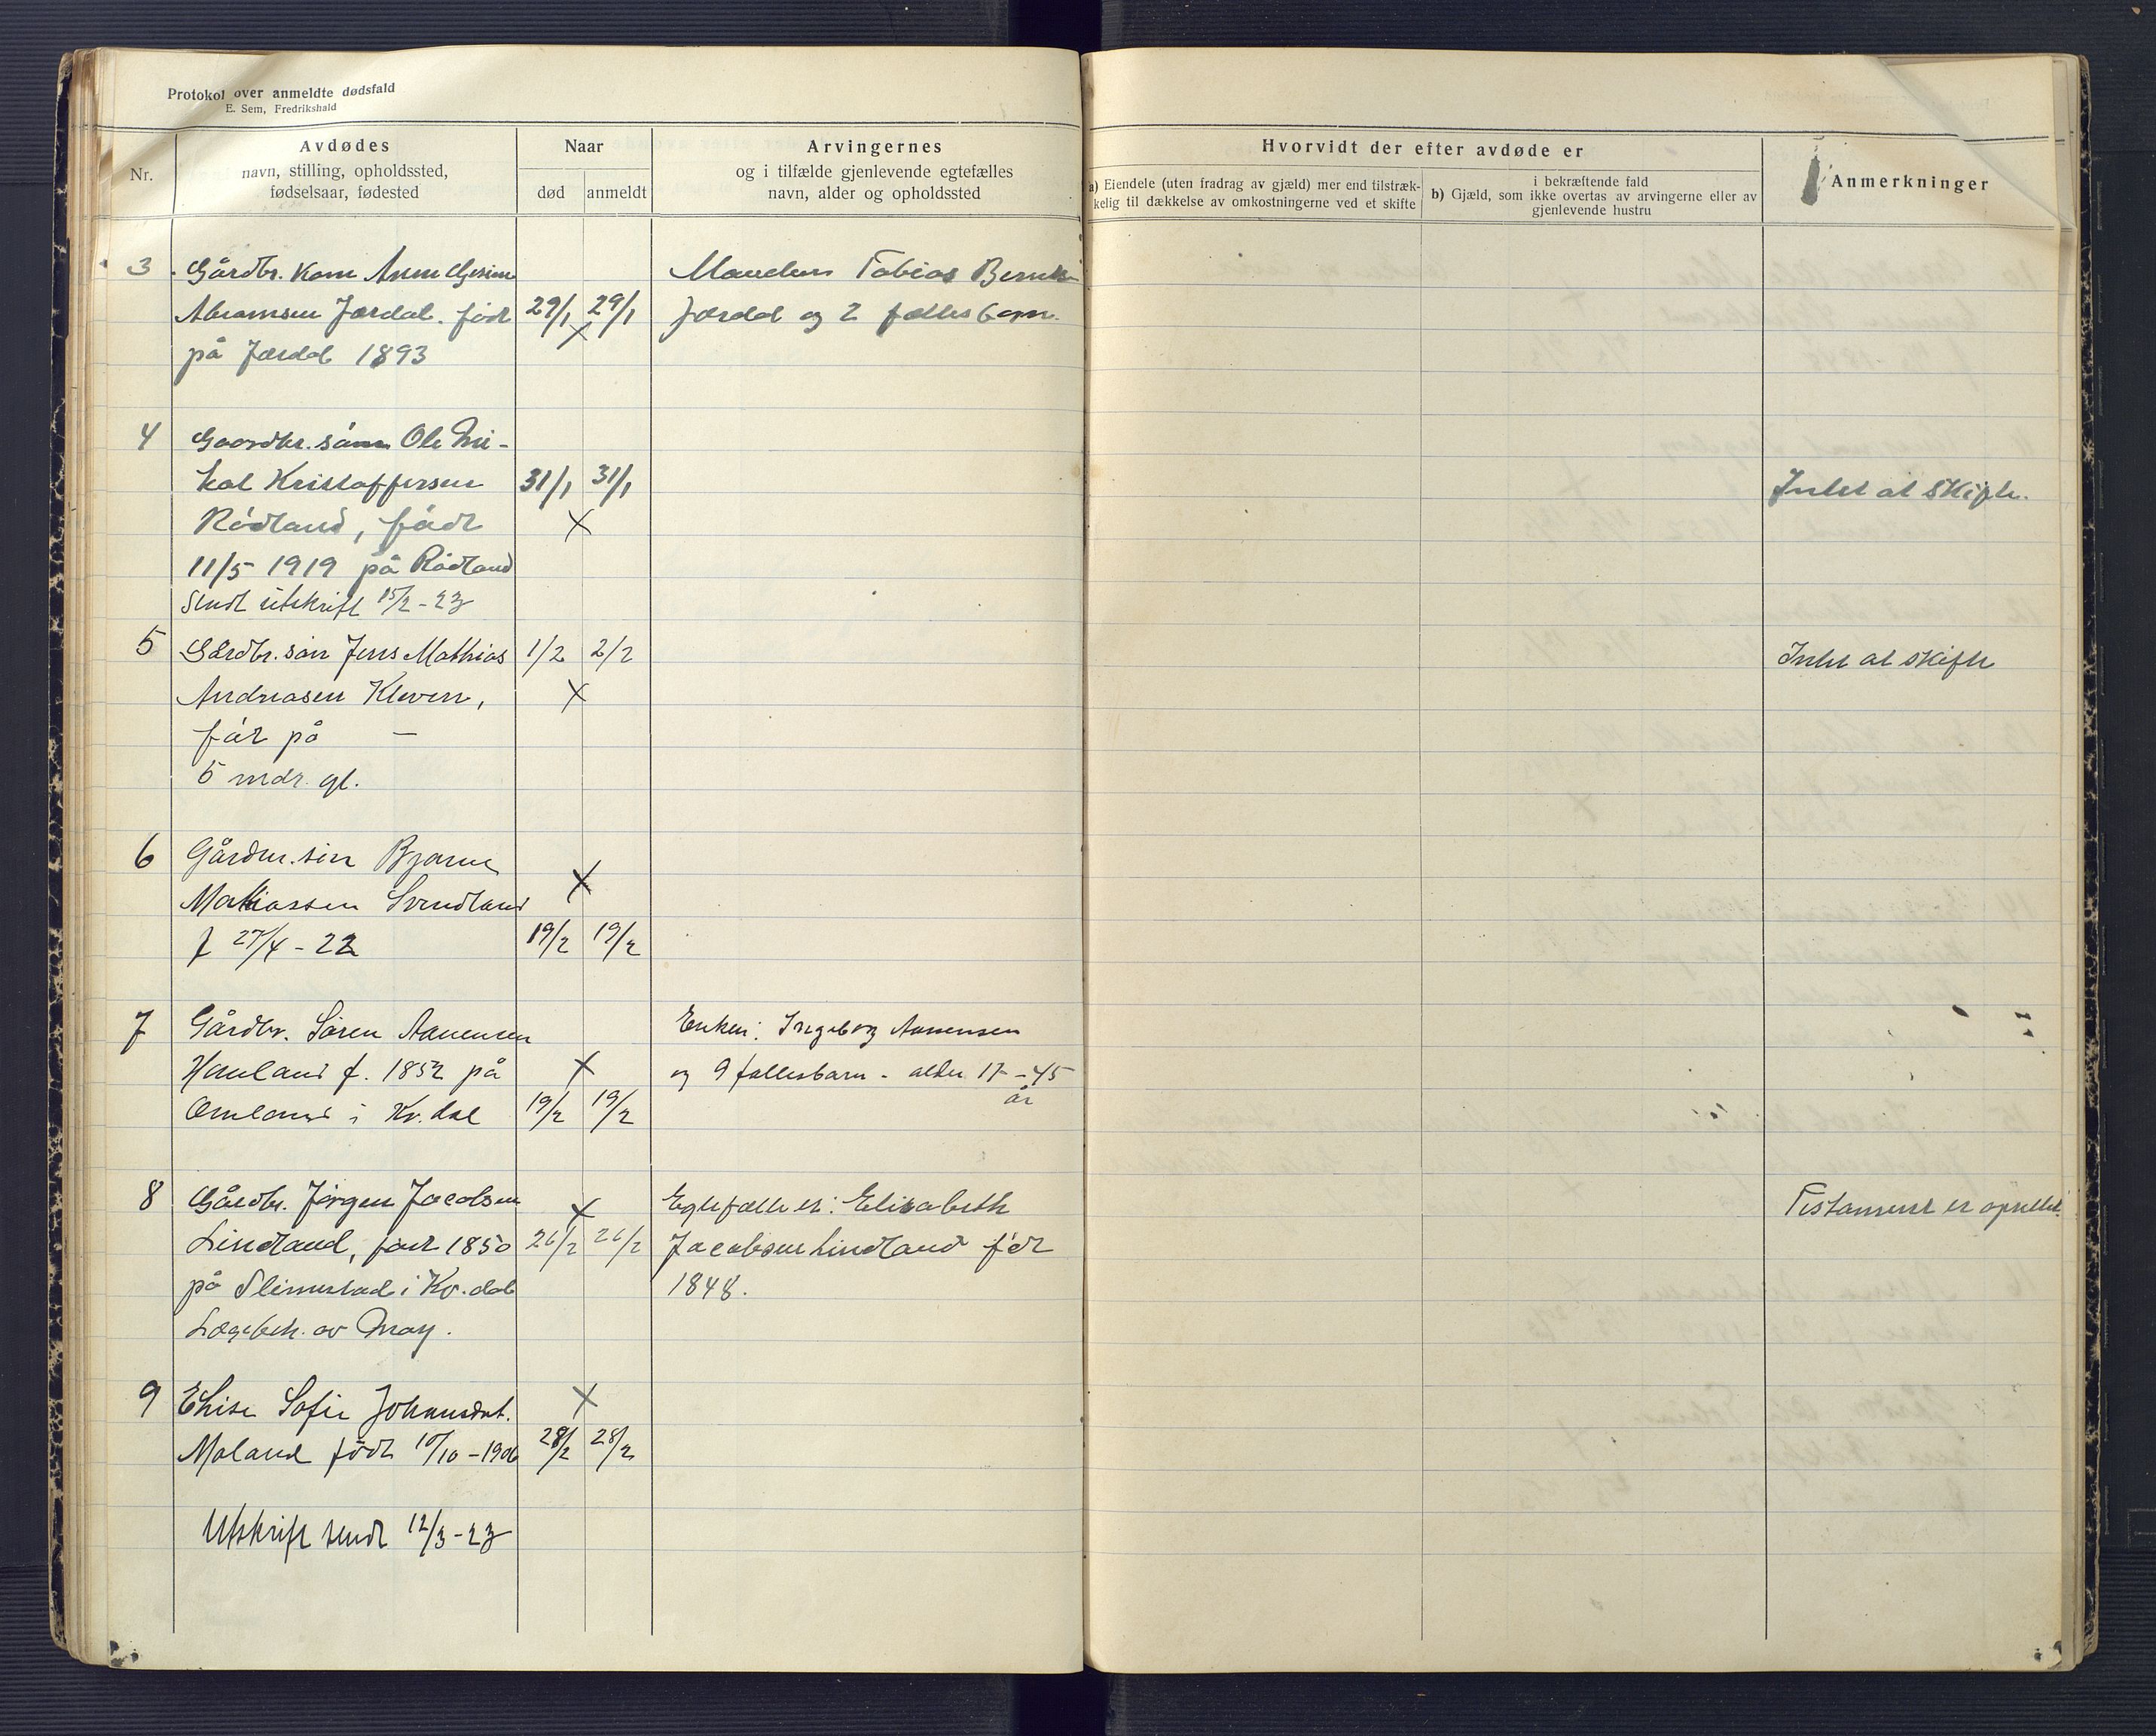 Protokol over anmeldte dødsfald
E. Sem, Fredrikshald
Nr.
Avdødes
navn, stilling, opholdssted,
fødselsaar, fødested
Naar
død
anmeldt
Arvingernes
og i tilfælde gjenlevende egtefælles
navn, alder og opholdssted
Hvorvidt der efter avdøde er
a) Eiendele (uten fradrag av gjæld) mer end tilstræk-
kelig til dækkelse av omkostningerne ved et skifte
i bekræftende fald
b) Gjæld, som ikke overtas av arvingerne eller av
gjenlevende hustru
Anmerkninger
3 Gårdbr. kone Anne
Abramsen Jærdal. født 29/1 29/1
på Jærdal 1893
Manden Tobias
Jærdal og 2 fælles barn.
4 Gaardbr. sønn Ole Mi-
kal Kristoffersen 31/1 31/1
Rødland, født X
11/5 1919 på Rødland
Sendt utskrift 15/2-23
Intet at skifte.
5 Gårdbr. søn Jens Mathias 1/2 2/2
Andreasen Kleven, X
født på —
5 mdr. gl.
Intet at skifte
6 Gårdbr. søn Bjarne
Mathiassen Svindland X
f 27/4-22 19/2 19/2
7 Gårdbr. Sören Aanensen
Hauland f. 1852 på X
Omland i Kv.dal 19/2 19/2
Enken: Ingeborg Aanensen
og 9 fællesbarn - alder 17-45
år
8 Gårdbr. Jörgen Jacobsen X
Lindland, født 1850 26/2 26/2
på Slimestad i Kv.dal
Lægebeh. av
Egtefælle er: Elisabeth
Jacobsen Lindland født
1848.
Testament er oprettet.
9 Elise Sofie Johansdat. X
Moland født 10/10-1906 28/2 28/2
Utskrift sendt 12/3-23